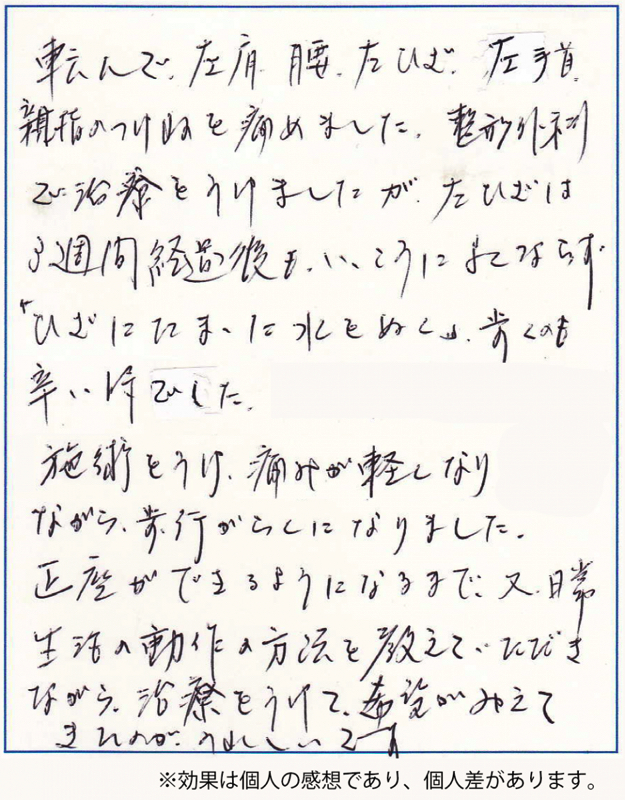 転んで、左肩、腰、左ひざ、左手首
親指のつけねを痛めました。整形外科
で治療をうけましたが、左ひざは
3週間経過後も、いっこうによくならず
「ひざにたまった水をぬく」、歩くのも
辛い時でした。
施術をうけ、痛みが軽くなり
ながら、歩行がらくになりました。
正座ができるようになるまで、又、日常
生活の動作の方法を教えていただき
ながら、治療をうけて、希望がみえて
きたのが、うれしいです
※効果は個人の感想であり、個人差があります。